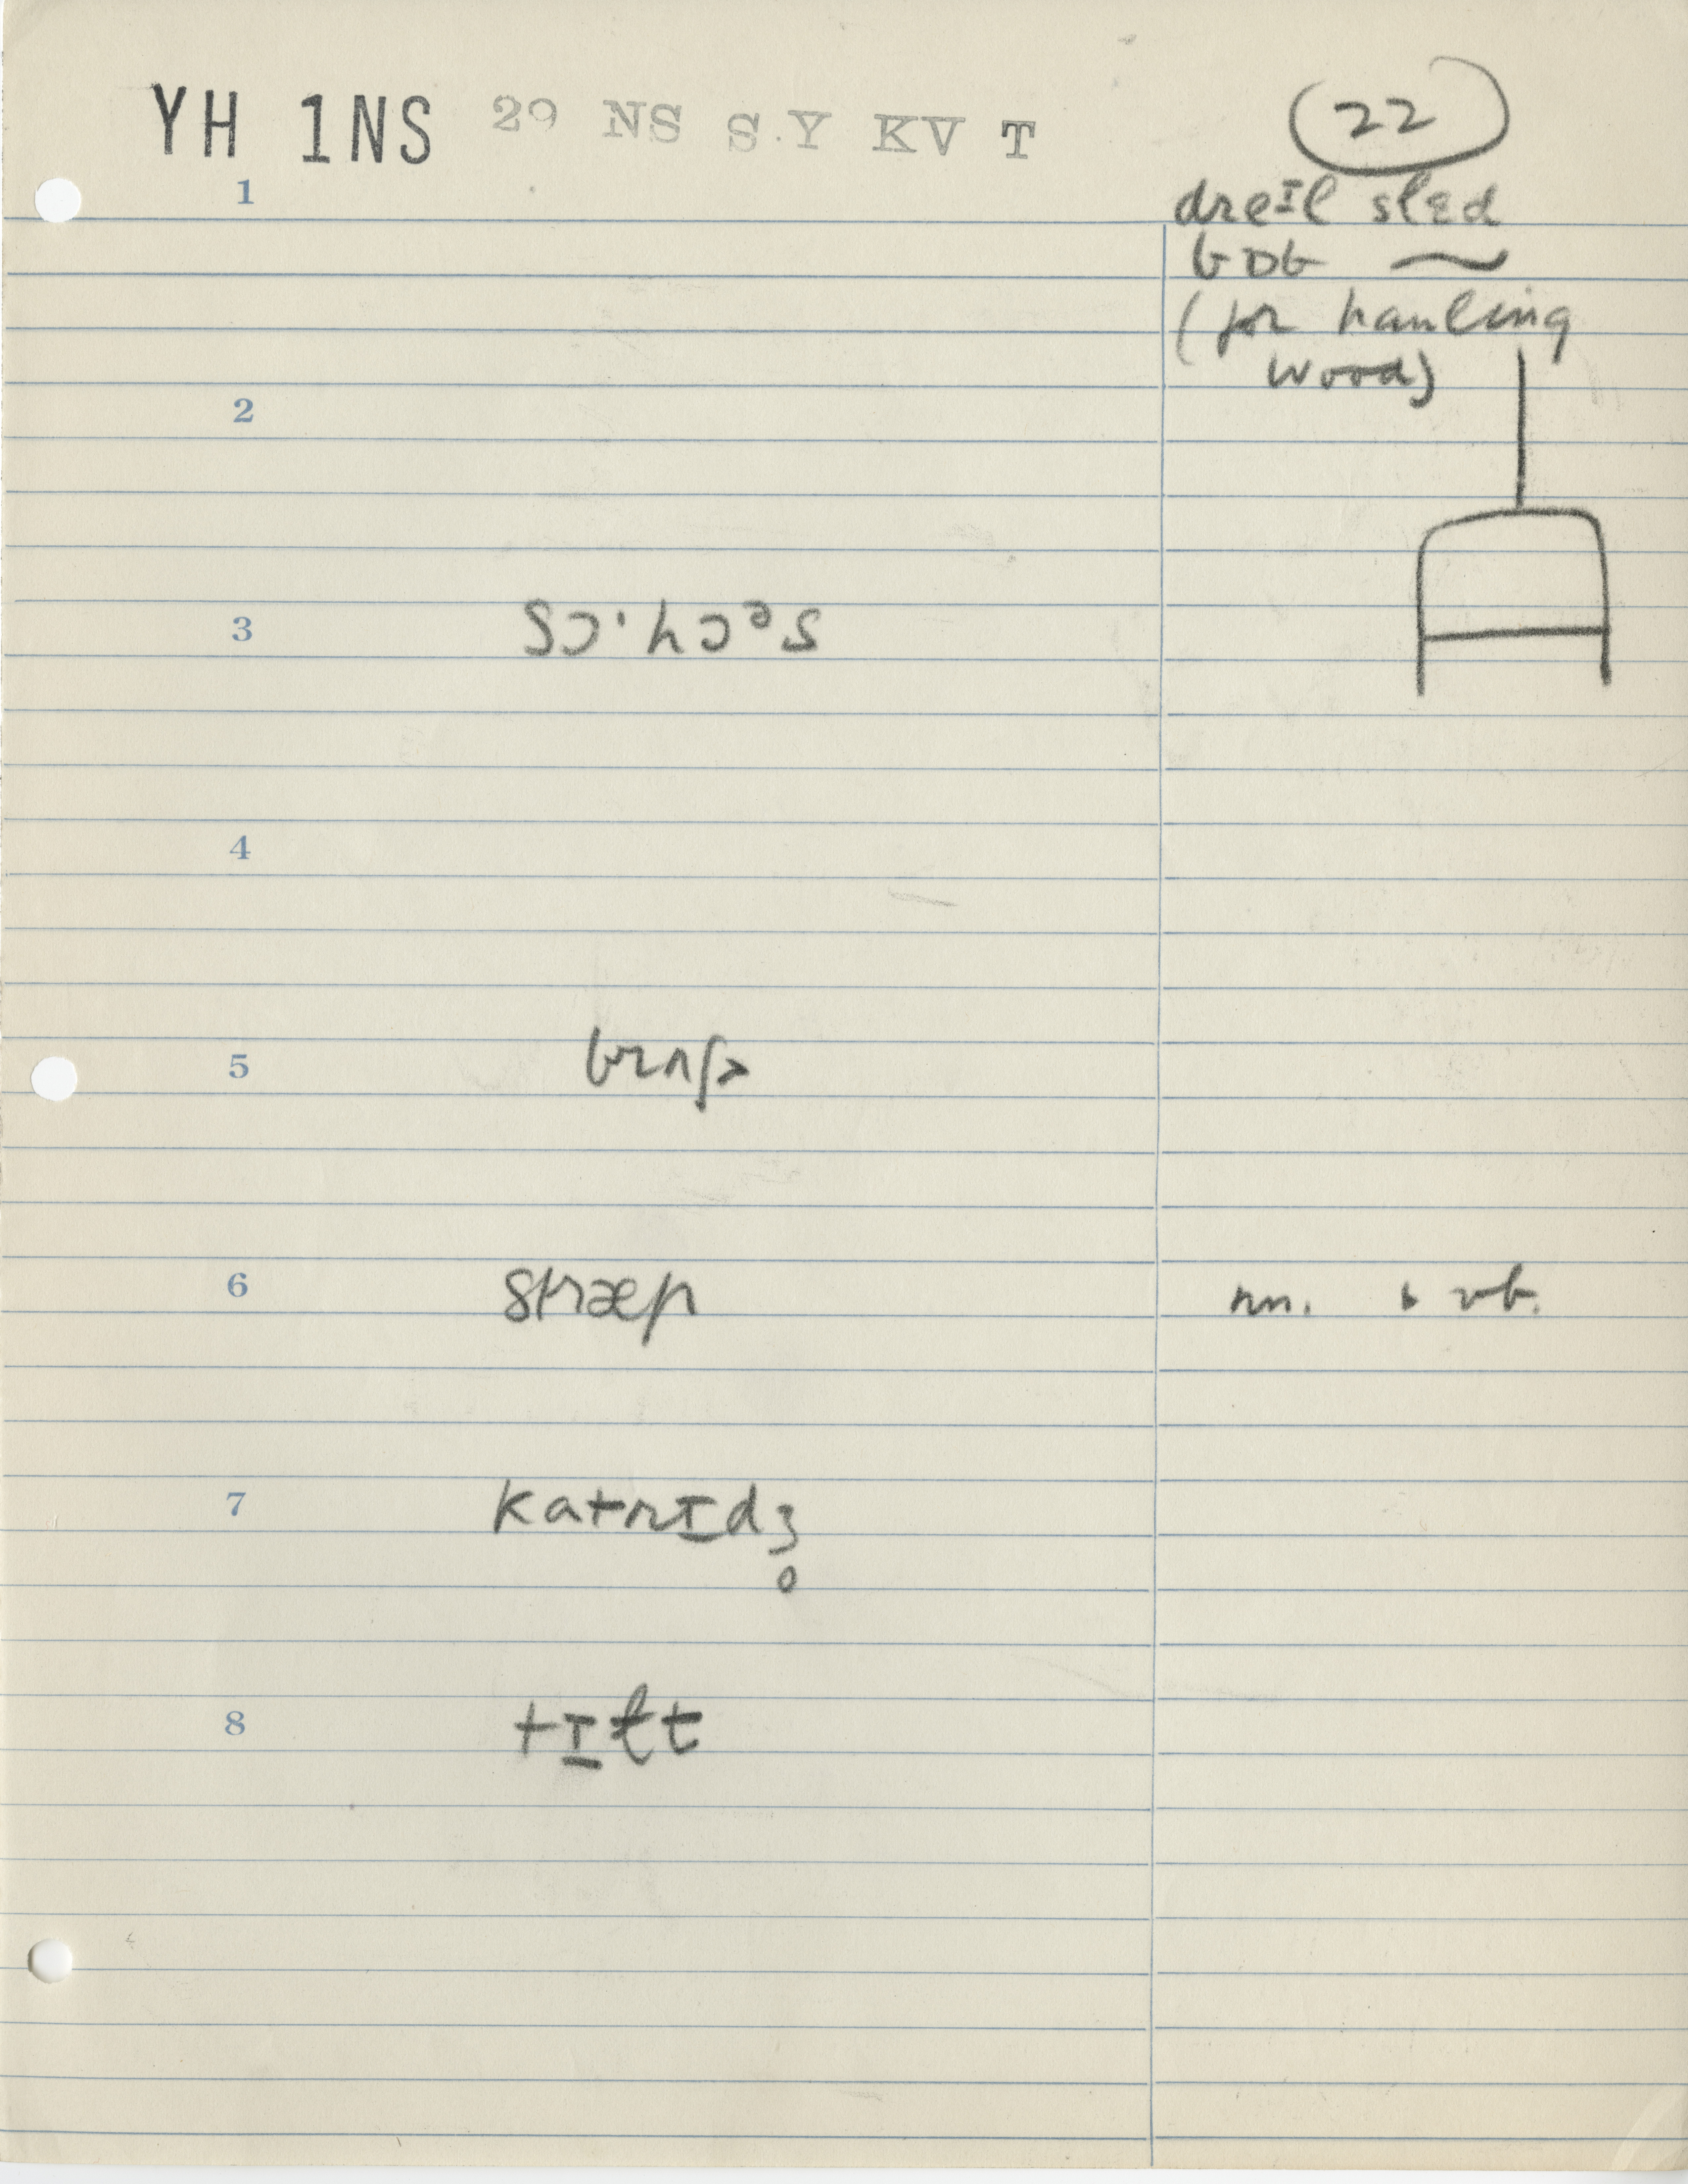 YH 1NS 29 NS S.Y KV T
(22)
1
dreɪl sled
bɒb ~
(for hauling
wood)
2
3
4
5 brʌʃ
6 stræp nn. & vb.
7 katrɪdʒ̥
8 tɪɫt